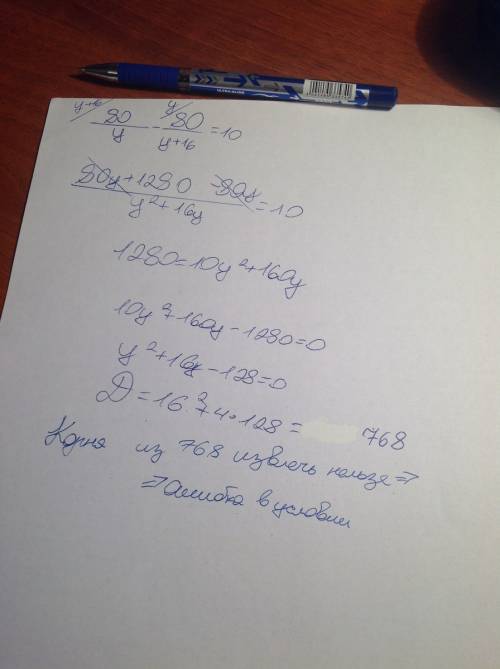 y+16/ 80/y - y/ 80/(y+16) = 10
(80y+1280 -80y)/(y²+16y) = 10
1280=10y²+160y
10y²+160y-1280=0
y²+16y-128=0
D=16²+4·128= 768
Корня из 768 извлечь нельзя ⇒
⇒ Ошибка в условии